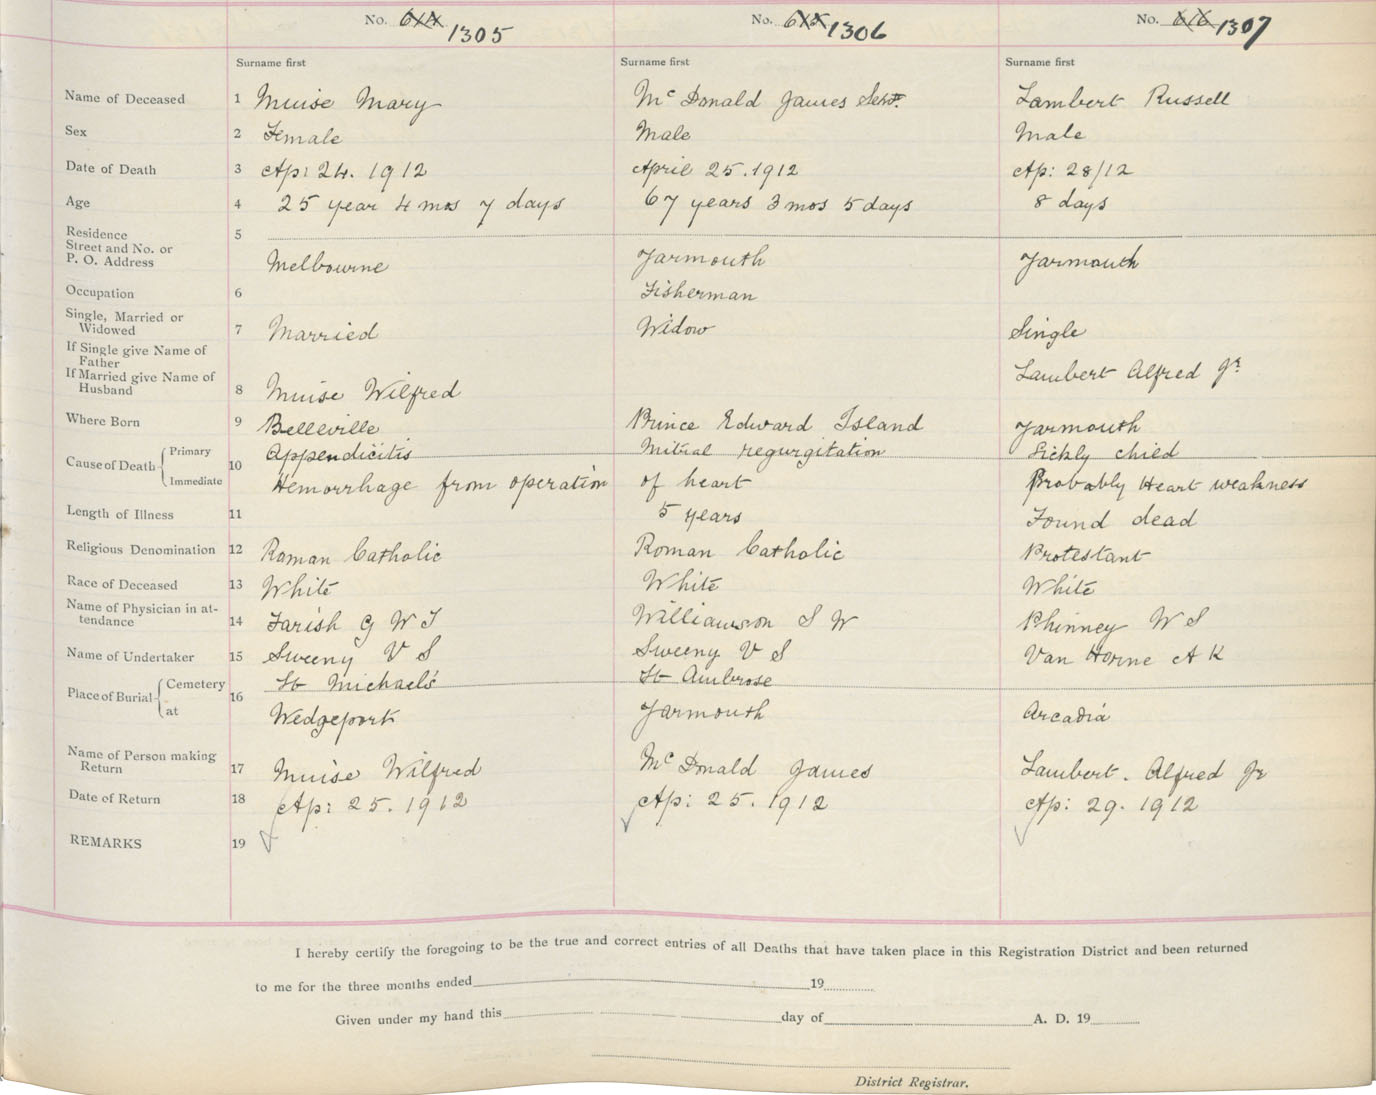 No. 614 1305 No. 615 1306 No. 616 1307
Surname first Surname first Surname first
Name of Deceased 1 Muise Mary McDonald James Senr. Lambert Russell
Sex 2 Female Male Male
Date of Death 3 Ap: 24. 1912 April 25. 1912 Ap: 28/12
Age 4 25 year 4 mos 7 days 67 years 3 mos 5 days 8 days
Residence 5
Street and No. or
P. O. Address Melbourne Yarmouth Yarmouth
Occupation 6 Fisherman
Single, Married or
Widowed 7 Married Widow Single
If Single give Name of
Father Lambert Alfred Jr
If Married give Name of
Husband 8 Muise Wilfred
Where Born 9 Belleville Prince Edward Island Yarmouth
Cause of Death Primary 10 Appendicitis Mitral regurgitation Sickly child
Immediate Hemorrhage from operation of heart Probably Heart weakness
Length of Illness 11 5 years Found dead
Religious Denomination 12 Roman Catholic Roman Catholic Protestant
Race of Deceased 13 White White White
Name of Physician in at-
tendance 14 Farish G W T Williamson S W Phinney W S
Name of Undertaker 15 Sweeny V S Sweeny V S Van Horne A K
Place of Burial Cemetery 16 St Michael's St Ambrose
at Wedgeport Yarmouth Arcadia
Name of Person making
Return 17 Muise Wilfred McDonald James Lambert. Alfred Jr
Date of Return 18 Ap: 25. 1912 Ap: 25. 1912 Ap: 29. 1912
REMARKS 19
I hereby certify the foregoing to be the true and correct entries of all Deaths that have taken place in this Registration District and been returned
to me for the three months ended 19
Given under my hand this day of A. D. 19
District Registrar.